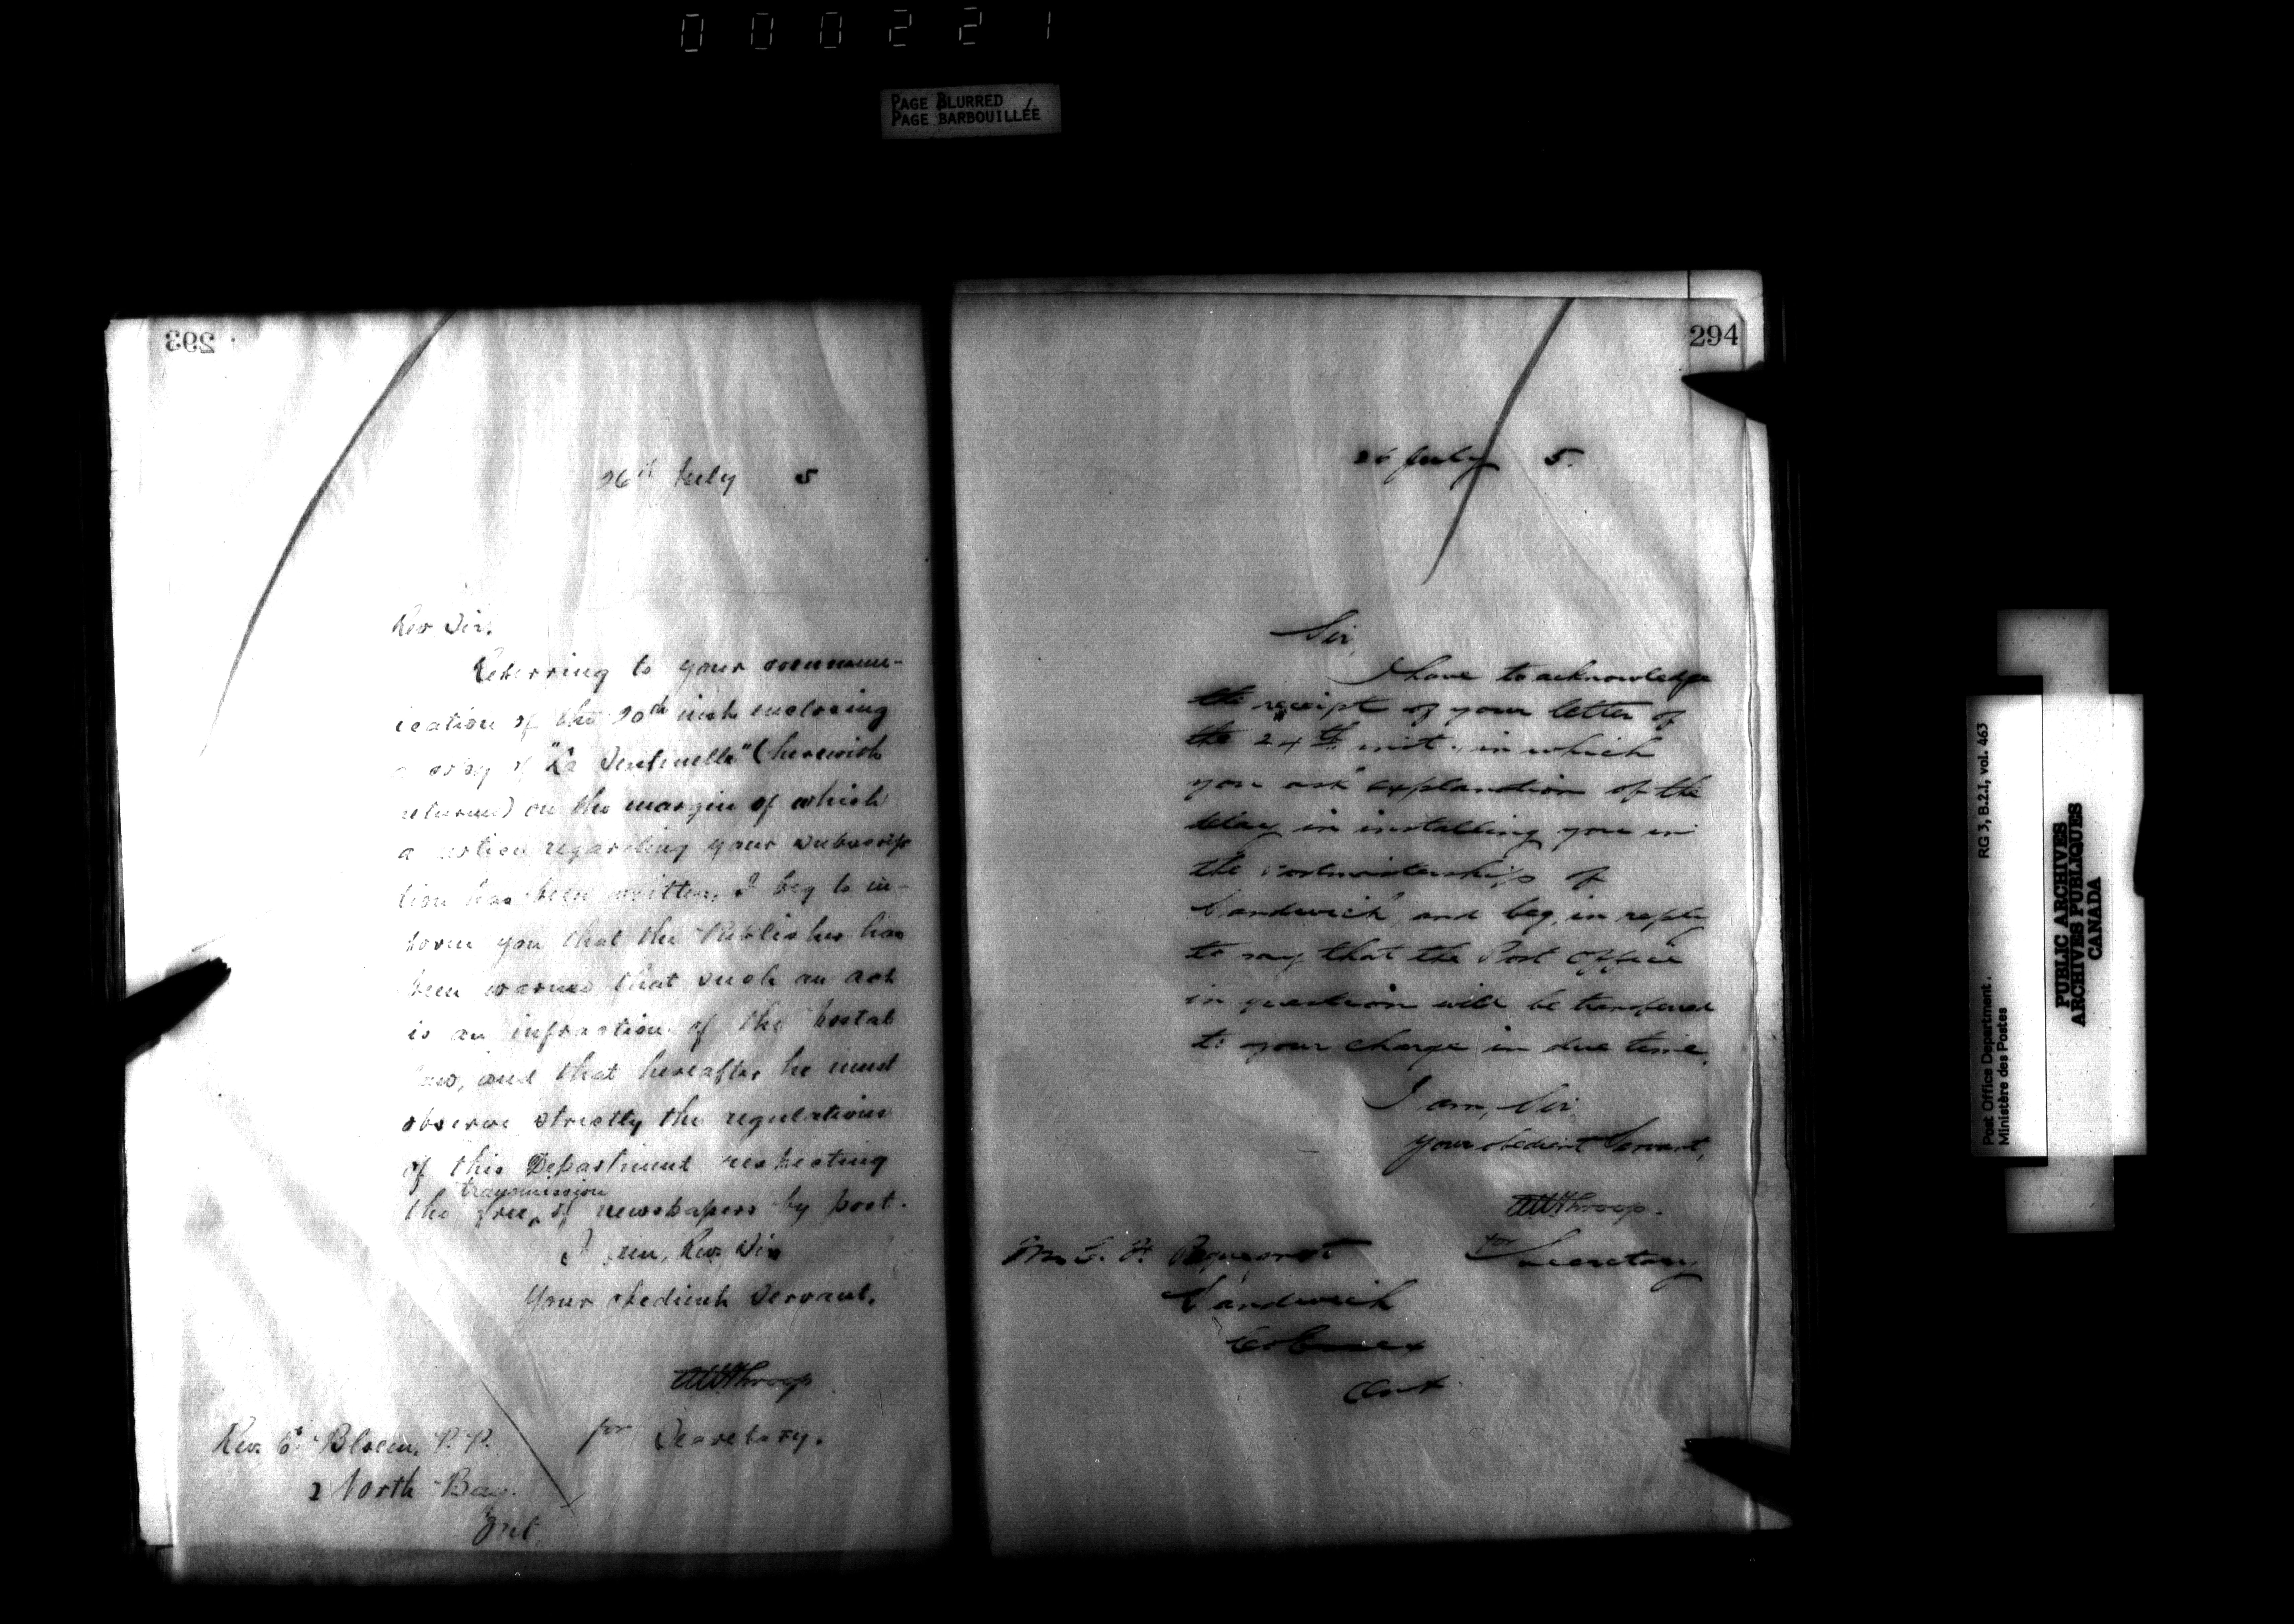 000221
PAGE BLURRED
PAGE BARBOUILLÉE
293
26th July 5
Rev Sir,
Referring to your commun-
ication of the 20th inst enclosing
a copy of "La Sentinelle" (herewith
returned) on the margin of which
a notice regarding your subscrip
tion has been written, I beg to in-
form you that the Publisher has
been warned that such an act
is an infraction of the postal
law, and that hereafter he must
observe strictly the regulations
of this Department respecting
transmission
the free of newspapers by post.
I am, Rev. Sir
Your obedient Servant.
AWThroop
for Secretary.
Rev. E. Bloem, P.P.
North Bay.
Ont
294
26 July 5.
Sir,
I have to acknowledge
the receipt of your letter of
the 24th inst. in which
you ask explanation of the
delay in installing you in
the postmastership of
Sandwich, and beg, in reply
to say that the Post Office
in question will be transferred
to your charge in due time.
I am, Sir
Your obedient Servant,
AWThroop.
for Secretary
Mr
Sandwich
Co Essex
Ont
Post Office Department. RG 3, B.2.I, vol. 463
Ministère des Postes
PUBLIC ARCHIVES
ARCHIVES PUBLIQUES
CANADA